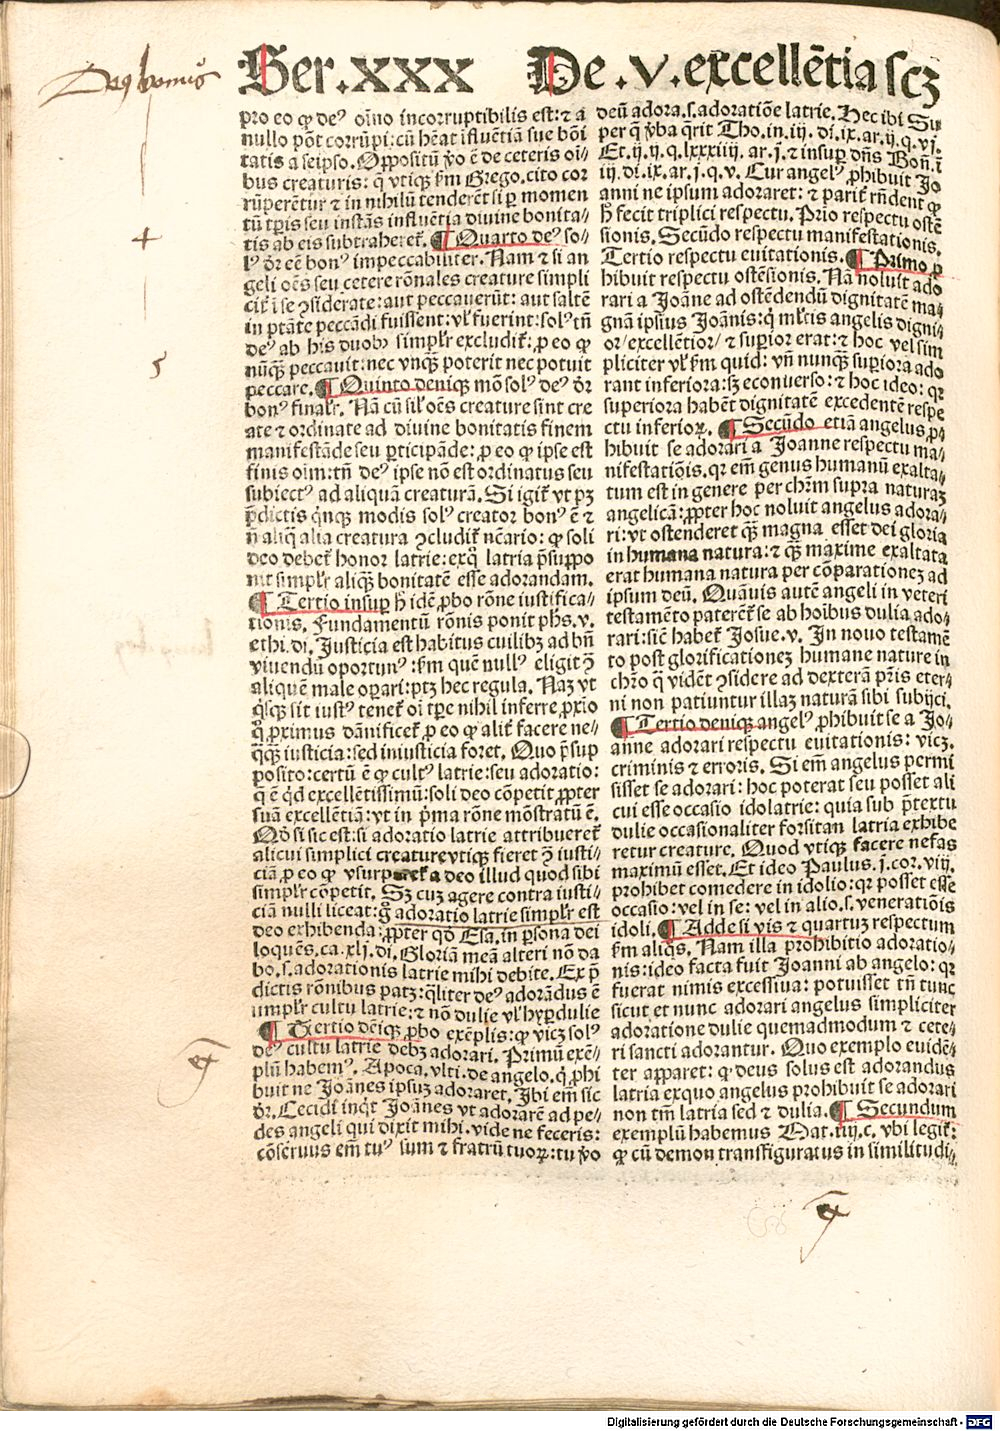 Deus bonus
Ser .XXX De .V. excellẽtia scꝫ
pro eo ꝙ deꝰ oĩno incorruptibilis est: ⁊ a
nullo põt corrũpi: cũ hẽat ĩfluẽtiã sue bõi
tatis a seipso. Oppositũ ṽo ẽ de ceteris oĩ⸗
bus creaturis: q̃ vtiqꝫ fm̃ Grego. cito cor
rũperẽtur ⁊ in nihilũ tenderẽt si ꝑ momen
tũ tꝑis seu instãs influẽtia diuine bonita⸗
tis ab eis subtraheret̃. ¶ Quarto deꝰ so⸗
lꝰ d̃r eẽ bonꝰ impeccabiliter. Nam ⁊ si an
geli oẽs seu cetere rõnales creature simpli
cit̃ ĩ se ꝯsiderate: aut peccauerũt: aut saltẽ
in ptãte peccãdi fuissent: vl̃ fuerint: solꝰ tñ
deꝰ ab his duobꝫ simpl̃r excludit̃: ꝑ eo ꝙ
nũqꝫ̃ peccauit: nec vnqꝫ̃ poterit nec potuit
peccare. ¶ Quinto deniqꝫ mõ solꝰ deꝰ d̃r
bonꝰ finalr̃. Nã cũ sil̃ oẽs creature sint cre
ate ⁊ ordinate ad diuine bonitatis finem
manifestãde seu ꝑticipãde: ꝑ eo ꝙ ipse est
finis oĩm: tñ deꝰ ipse nõ est ordinatus seu
subiectꝰ ad aliquã creaturã. Si igit̃ vt pꝫ
p̃dictis q̃nqꝫ modis solꝰ creator bonꝰ ẽ ⁊
ñ aliq̃ alia creatura ꝯcludit̃ ncãrio: ꝙ soli
deo debet̃ honor latrie: exq̃ latria p̃suppo
nit simpl̃r aliqꝫ̃ bonitatẽ esse adorandam.
¶ Tertio insuꝑ h̃ idẽ ꝓbo rõne iustifica⸗
tionis. Fundamentũ rõnis ponit phs̃. v.
ethi. di. Justicia est habitus cuilibꝫ ad bñ
viuendũ oportunꝰ: fm̃ quẽ nullꝰ eligit ꝯ̃
aliquẽ male oꝑari: ptꝫ hec regula. Naꝫ vt
q̃sqꝫ sit iustꝰ tenet̃ oĩ tꝑe nihil inferre ꝓxio
q̃ ꝓximus dãnificet̃ ꝑ eo ꝙ alit̃ facere ne⸗
qꝫ̃qꝫ̃ iusticia: sed iniusticia foret. Quo p̃sup
posito: certũ ẽ ꝙ cultꝰ latrie: seu adoratio:
q̃ ẽ q̃d excellẽtissimũ: soli deo cõpetit ꝓpter
suã excellẽtiã: vt in p̃ma rõne mõstratũ ẽ.
Qõ si sic est: si adoratio latrie attribueret̃
alicui simplici creature vtiqꝫ fieret ꝯ̃ iusti⸗
ciã ꝑ eo ꝙ vsurparet̃ a deo illud quod sibi
simpl̃r cõpetit. Sꝫ cuꝫ agere contra iusti⸗
ciã nulli liceat: g̃ adoratio latrie simpl̃r est
deo exhibenda: ꝓpter qd̃ Esa. in ꝑsona dei
loquẽs. ca. xlj. di. Gloriã meã alteri nõ da
bo. s. adorationis latrie mihi debite. Ex p̃
dictis rõnibus patꝫ: q̃liter deꝰ adorãdus ẽ
simpl̃r cultu latrie: ⁊ nõ dulie vl̃ hyꝑdulie
¶ Tertio dẽiqꝫ ꝓbo exẽplis: ꝙ vicꝫ solꝰ
deꝰ cultu latrie debꝫ adorari. Primũ exẽ⸗
plũ habemꝰ. Apoca. vlti. de angelo. q̃ ꝓhi
buit ne Joãnes ipsuꝫ adoraret. Jbi em̃ sic
d̃r. Cecidi inq̃t Joãnes vt adorarẽ ad pe⸗
des angeli qui dixit mihi. vide ne feceris:
cõseruus em̃ tuꝰ sum ⁊ fratrũ tuoꝝ: tu ṽo
deũ adora. s. adoratiõe latrie. Hec ibi Su
per q̃ ṽba q̃rit Tho. in. iij. di. ix. ar. ij. q. vj.
Et. ij. ij. q. lxxxiiij. ar. j. ⁊ insuꝑ dñs Boñ. ĩ
iij. di. ix. ar. j. q. v. Cur angelꝰ ꝓhibuit Jo
anni ne ipsum adoraret: ⁊ parit̃ rñdent ꝙ
h̃ fecit triplici respectu. Prio respectu ostẽ
sionis. Secũdo respectu manifestationis.
Tertio respectu euitationis. ¶ Primo ꝓ
hibuit respectu ostẽsionis. Nã noluit ado
rari a Joãne ad ostẽdendũ dignitatẽ ma⸗
gnã ipsius Joãnis: q̃ ml̃tis angelis digni⸗
or/ excellẽtior/ ⁊ suꝑior erat: ⁊ hoc vel sim
pliciter vl̃ fm̃ quid: vñ nunqꝫ̃ suꝑiora ado
rant inferiora: sꝫ econuerso: ⁊ hoc ideo: qꝛ
superiora habẽt dignitatẽ excedentẽ respe
ctu inferioꝝ. ¶ Secũdo etiã angelus ꝓ⸗
hibuit se adorari a Joanne respectu ma⸗
nifestatiõis. qꝛ em̃ genus humanũ exalta⸗
tum est in genere per chr̃m supra naturaꝫ
angelicã: ꝓpter hoc noluit angelus adora⸗
ri: vt ostenderet qꝫ̃ magna esset dei gloria
in humana natura: ⁊ qꝫ̃ maxime exaltata
erat humana natura per cõparationeꝫ ad
ipsum deũ. Quãuis autẽ angeli in veteri
testamẽto paterẽt̃ se ab hoĩbus dulia ado⸗
rari: sic̃ habet̃ Josue. v. Jn nouo testamẽ
to post glorificationeꝫ humane nature in
chr̃o q̃ vidẽt ꝯsidere ad dexterã pr̃is eter⸗
ni non patiuntur illaꝫ naturã sibi subijci.
¶ Tertio deniqꝫ angelꝰ ꝓhibuit se a Jo⸗
anne adorari respectu euitationis: vicꝫ.
criminis ⁊ erroris. Si em̃ angelus permi
sisset se adorari: hoc poterat seu posset ali
cui esse occasio idolatrie: quia sub p̃textu
dulie occasionaliter forsitan latria exhibe
retur creature. Quod vtiqꝫ facere nefas
maximũ esset. Et ideo Paulus. j. cor. viij.
prohibet comedere in idolio: qꝛ posset esse
occasio: vel in se: vel in alio. s. venerationis
idoli. ¶ Adde si vis ⁊ quartuꝫ respectum
fm̃ aliq̃s. Nam illa prohibitio adoratio⸗
nis: ideo facta fuit Joanni ab angelo: qꝛ
fuerat nimis excessiua: potuisset tñ tunc
sicut et nunc adorari angelus simpliciter
adoratione dulie quemadmodum ⁊ cete⸗
ri sancti adorantur. Quo exemplo euidẽ⸗
ter apparet: ꝙ deus solus est adorandus
latria exquo angelus prohibuit se adorari
non tm̃ latria sed ⁊ dulia. ¶ Secundum
exemplũ habemus Mat. iiij. c. vbi legit̃:
ꝙ cũ demon transfiguratus in similitudi⸗
4
5
ex
ex
Digitalisierung gefördert durch die Deutsche Forschungsgemeinschaft - DFG